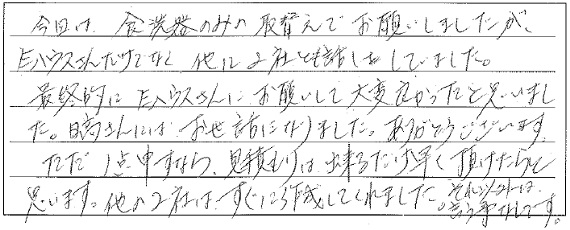 今回は、食洗器のみの取替えでお願いしましたが、
Eハウスさんだけでなく他に2社とも話しをしていました。
最終的にEハウスさんにお願いして大変良かったと思いまし
た。日高さんにはお世話になりました。ありがとうございます。
ただ1点申すなら、見積もりは出来るだけ早く頂けたらと
思います。他の2社はすぐに作成してくれました。それ以外は、
言う事なしです。